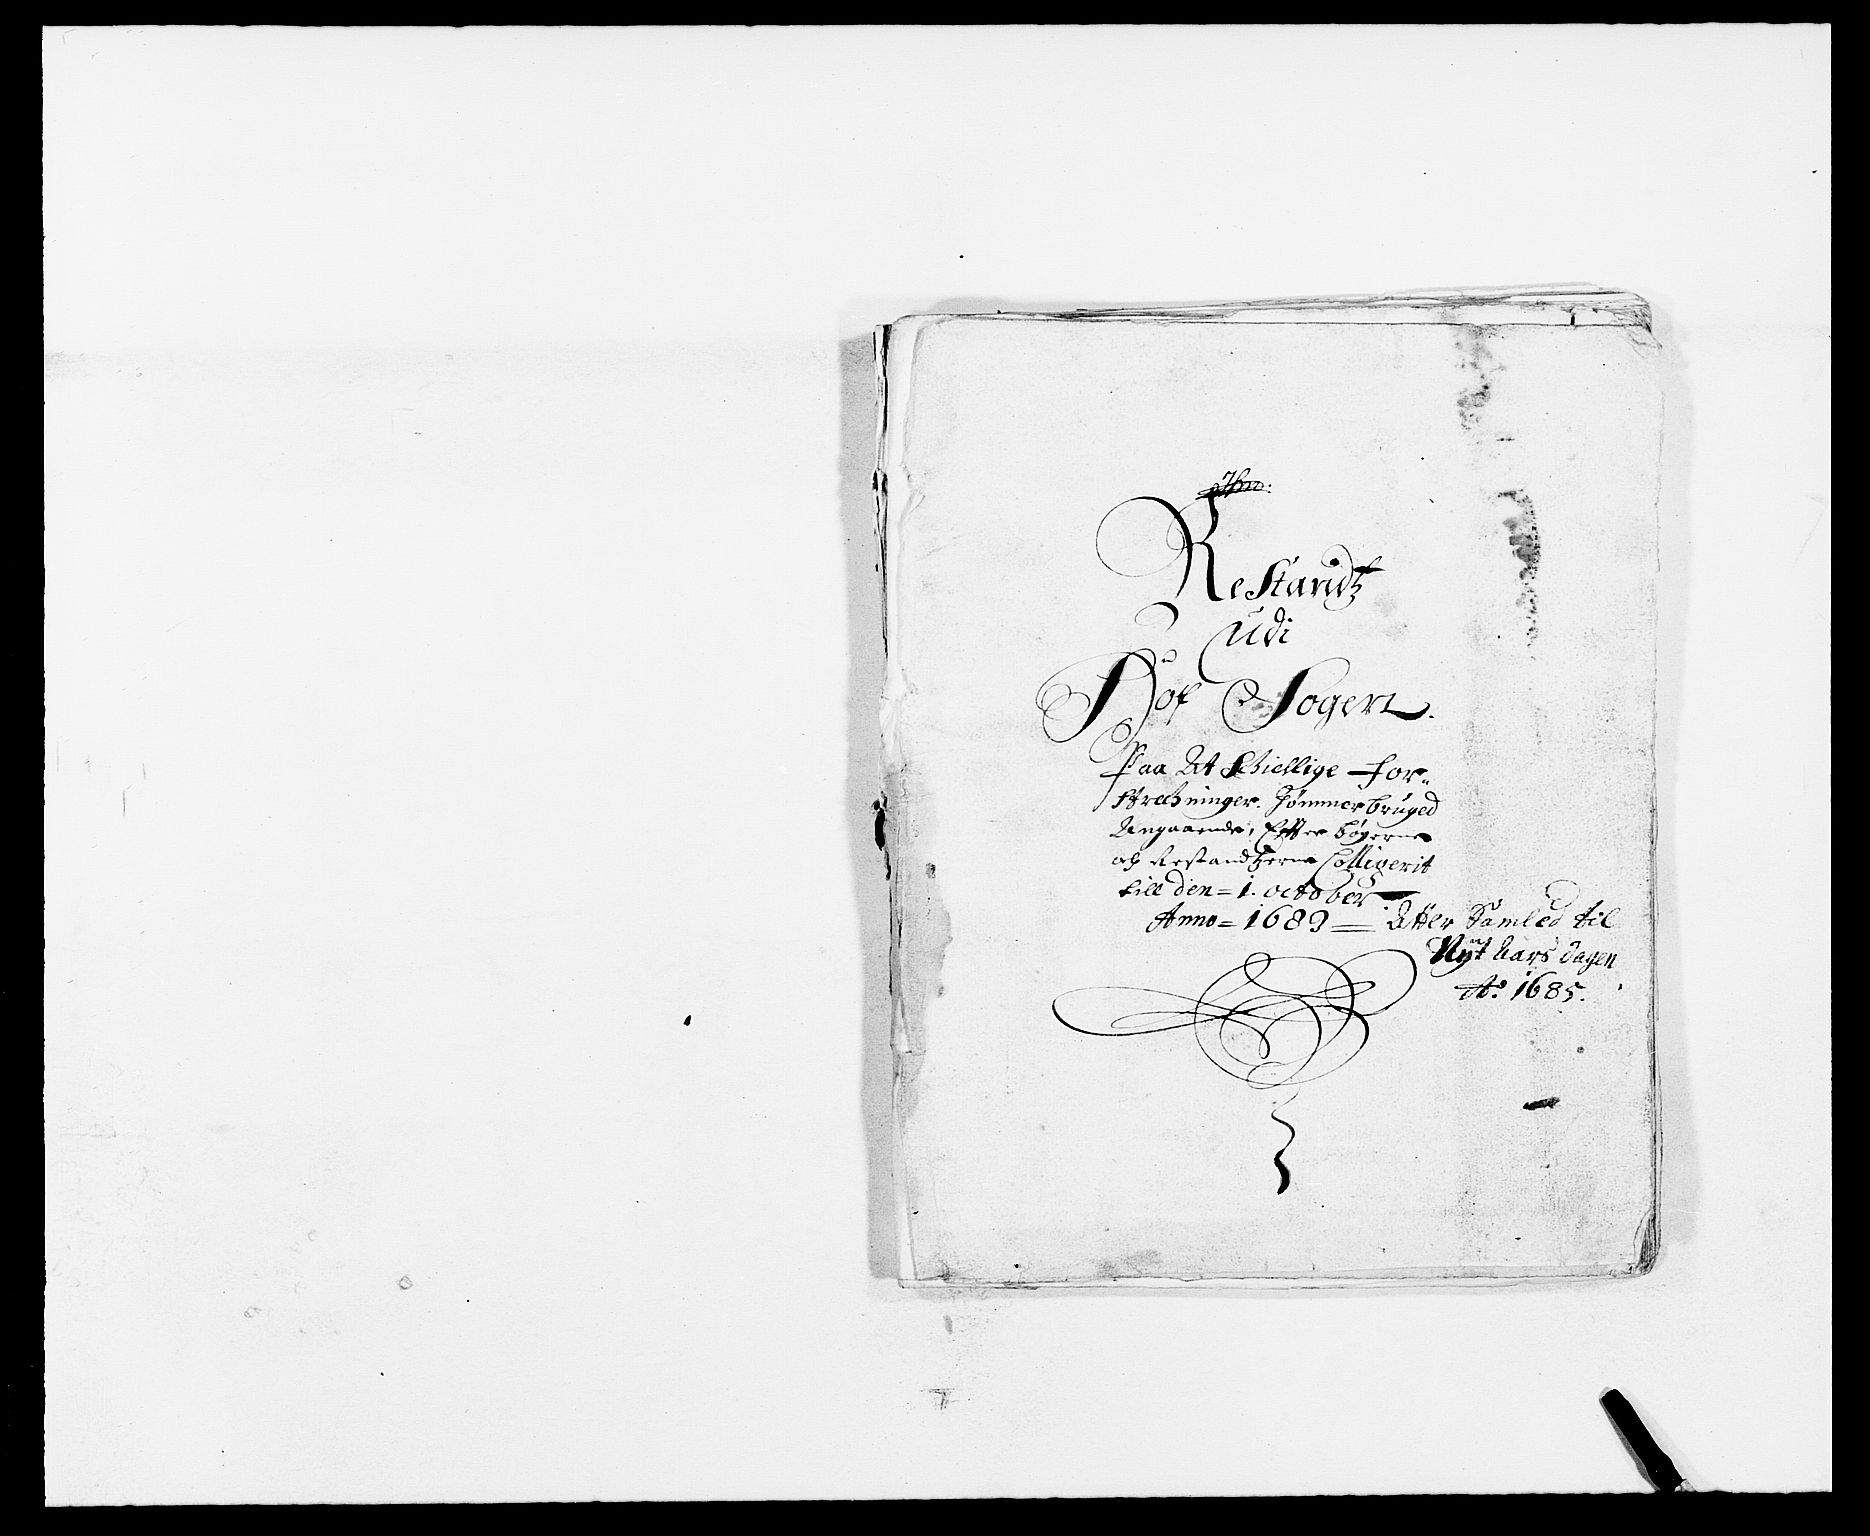 Restandtz
udi
Hof Sogen
Paa At Schiellige For„
strechninger. Tømmerbruged
Angaaende, Effter bøgerne
och Restandtzerne Colligerit
till den = 1. october
Anno = 1683 = Atter Samled til
Nyt Aars dagen
Ao. 1685.